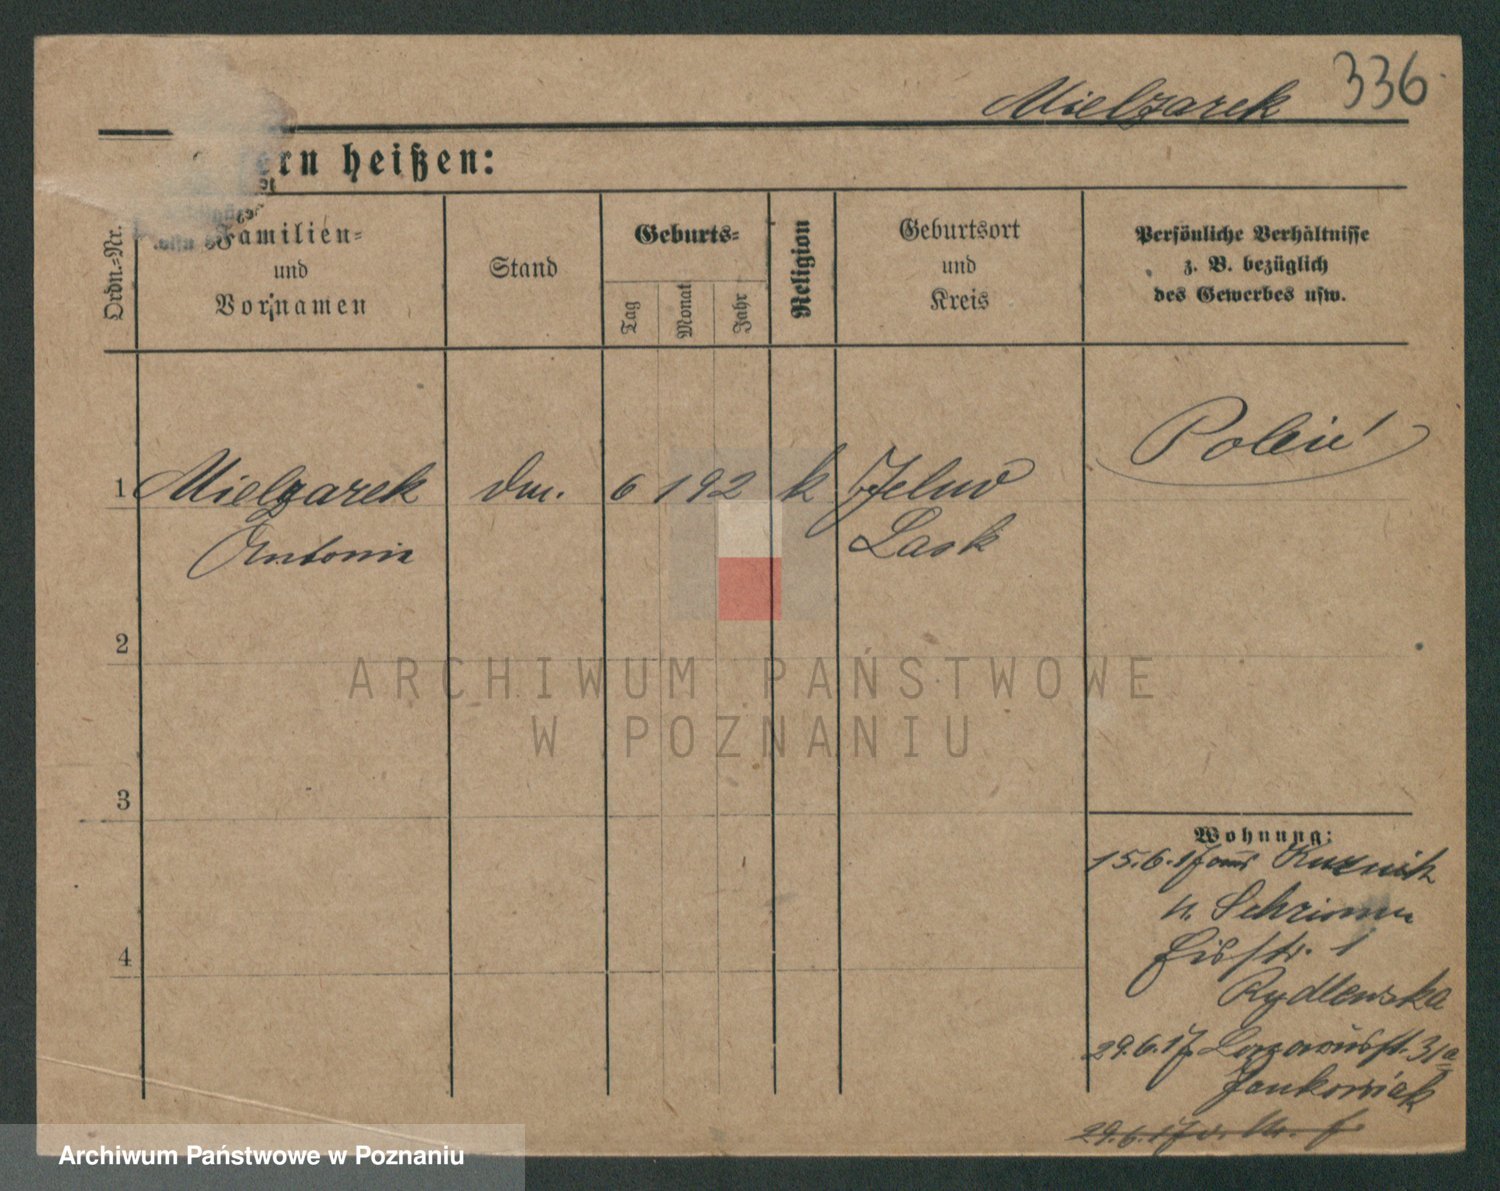 336
Mielzarek
ern heißen:
Ordn.-Nr.
Familien-
und
Vornamen
Stand
Geburts-
Tag
Monat
Jahr
Religion
Geburtsort
und
Kreis
Persönliche Verhältnisse
z. B. bezüglich
des Gewerbes usw.
1 Mielzarek
Antonia
6 1 92 k
Lask
2
3
4
Wohnung:
15.6.17 aus
n. Schrimm
1
Rydlewska
29.6.17 Lazarusstr. 31a
Jankowiak
29.6.17 v.
ARCHIWUM PAŃSTWOWE
W POZNANIU
Archiwum Państwowe w Poznaniu